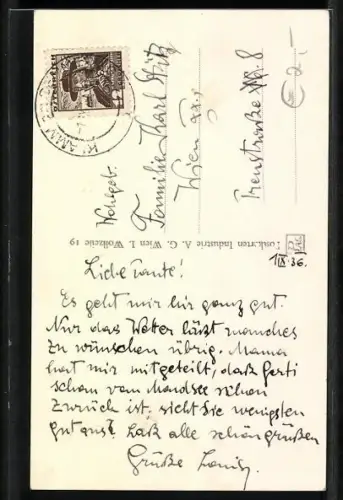 Liebe Tante!
Es geht mir hir ganz gut.
Nur das Wetter läßt manches
zu wünschen übrig. Mama
hat mir mitgeteilt, daß Gerti
schon vom Mondsee schon
zurück ist. sieht sie wenigsten
gut aus? Laß alle schön grüßen
Grüße
1/IX 36.
Postkarten Industrie A. G. Wien I. Wollzeile 19
Wohlgeb.
Familie Karl
Wien
8
€ 2,-
KLAMM